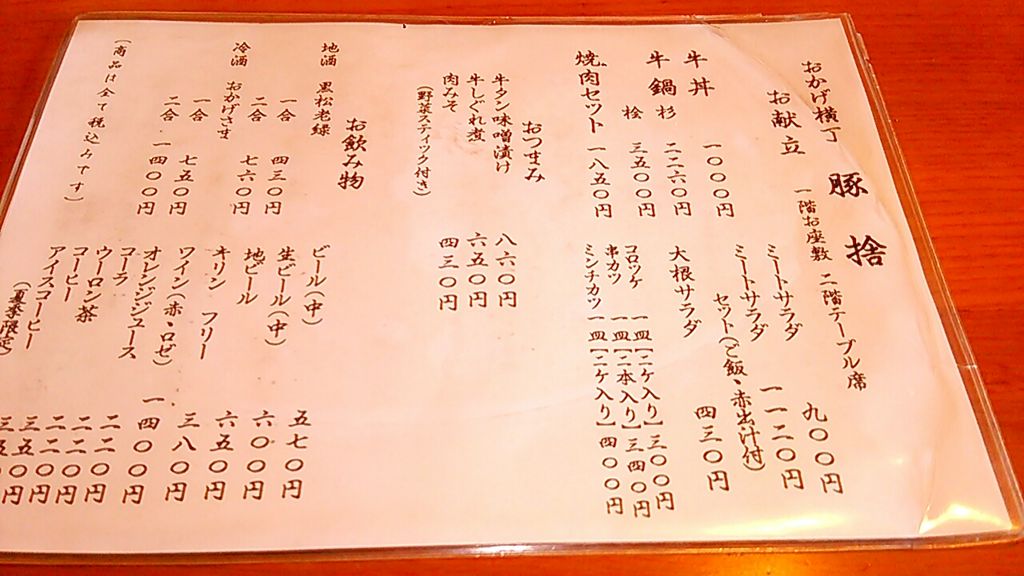 おかげ横丁 豚捨
お献立 一階お座敷 二階テーブル席
牛丼 一〇〇〇円
牛鍋 杉 二二六〇円
桧 三五〇〇円
焼肉セット 一八五〇円
ミートサラダ 九〇〇円
ミートサラダセット(ご飯・赤出汁付) 一一二〇円
大根サラダ 四三〇円
コロッケ 一皿【二ケ入り】 三〇〇円
串カツ 一皿【二本入り】 三四〇円
ミンチカツ 一皿【二ケ入り】 四〇〇円
おつまみ
牛タン味噌漬け 八六〇円
牛しぐれ煮 六五〇円
肉みそ 四三〇円
(野菜スティック付き)
お飲み物
地酒 黒松老緑 一合 四三〇円
二合 七六〇円
冷酒 おかげさま 一合 七五〇円
二合 一四〇〇円
(商品は全て税込みです)
ビール(中) 五七〇円
生ビール(中) 六〇〇円
地ビール 六五〇円
キリン フリー 三八〇円
ワイン(赤・ロゼ) 一四〇〇円
オレンジジュース 二二〇円
コーラ 二二〇円
ウーロン茶 二二〇円
コーヒー 三五〇円
アイスコーヒー 三五〇円
(夏季限定)